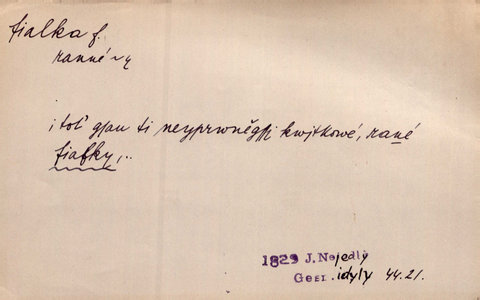 fialka f.
ranné ~y
; toť gsau ti neyprwněgssj kwjtkowé, rané
fialky,..
1829 J. Nejedlý
Gess. idyly 44.21.